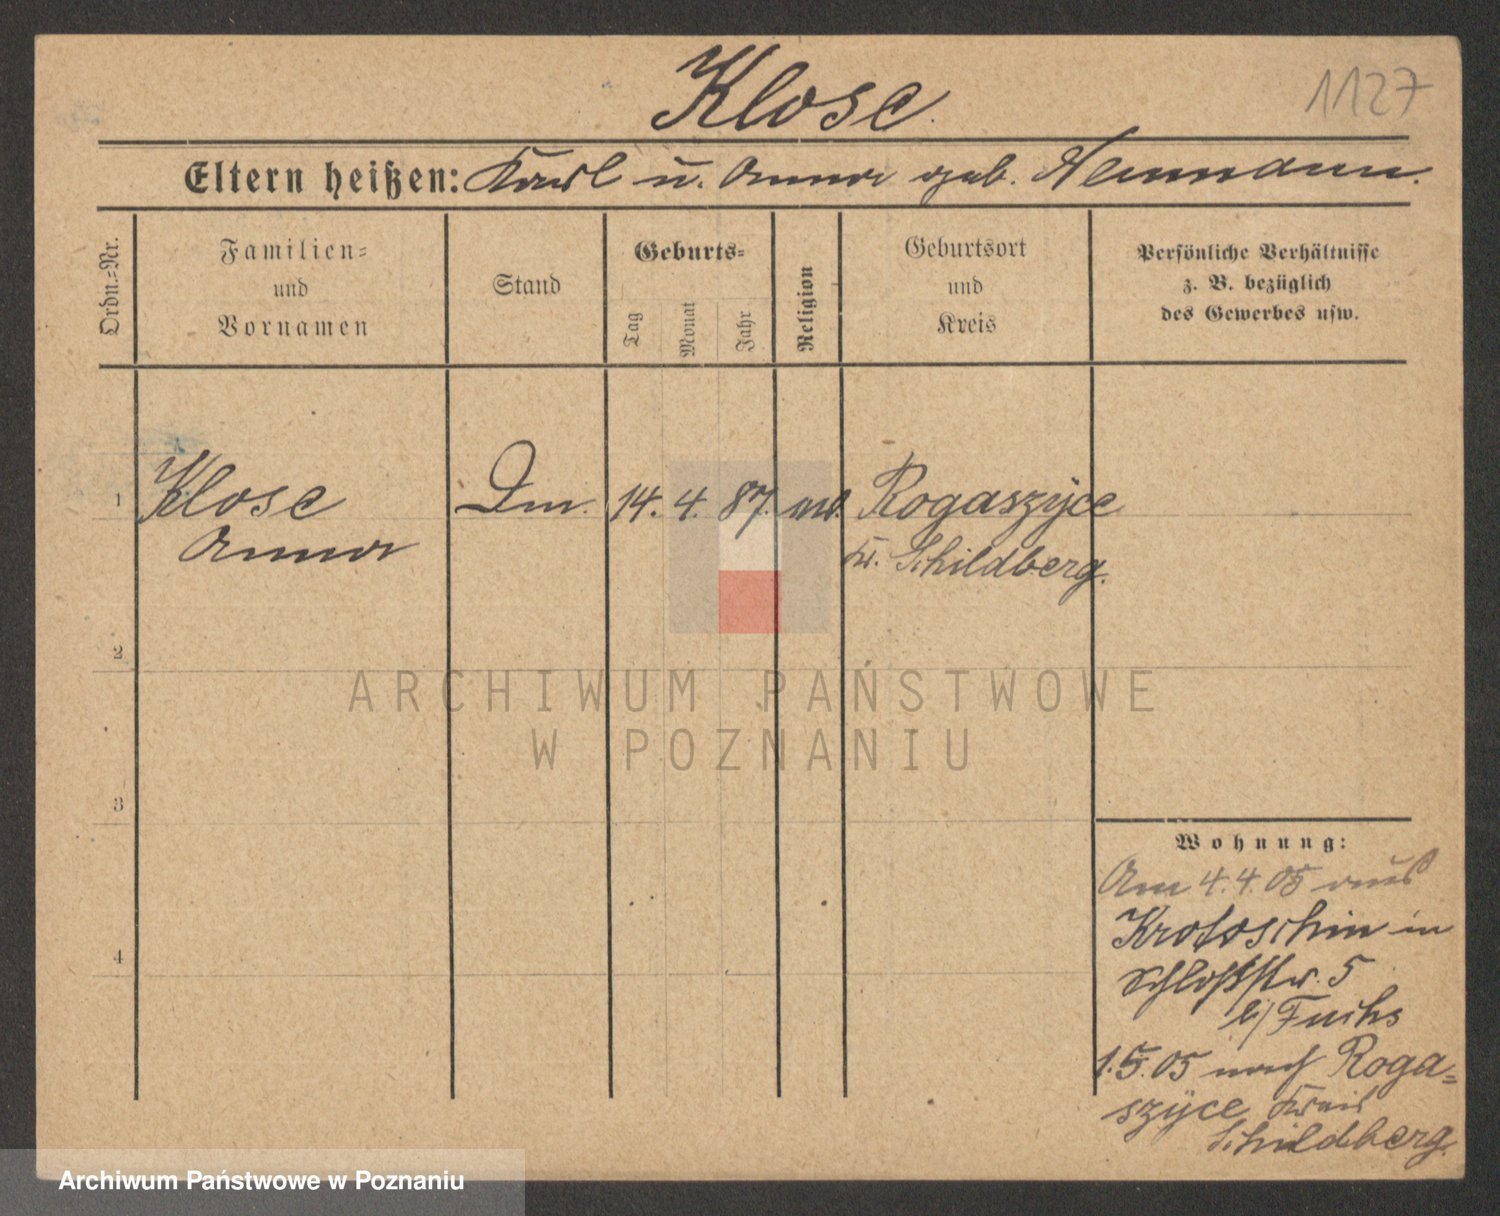 Klose.
1127
Eltern heißen: Karl u. Anna geb. Neumann.
Ordn.=Nr.
Familien=
und
Vornamen
Stand
Geburts=
Tag
Monat
Jahr
Religion
Geburtsort
und
Kreis
Persönliche Verhältnisse
z. B. bezüglich
des Gewerbes usw.
1 Klose Dm. 14. 4. 87. Rogaszyce
Anna Kr. Schildberg.
2
ARCHIWUM PAŃSTWOWE
W POZNANIU
3
Wohnung:
Am 4.4.05 aus
Krotoschin in
4
Schloßstr. 5
b/ Fuchs
1.5.05 nach Roga=
szyce Kreis
Schildberg.
Archiwum Państwowe w Poznaniu